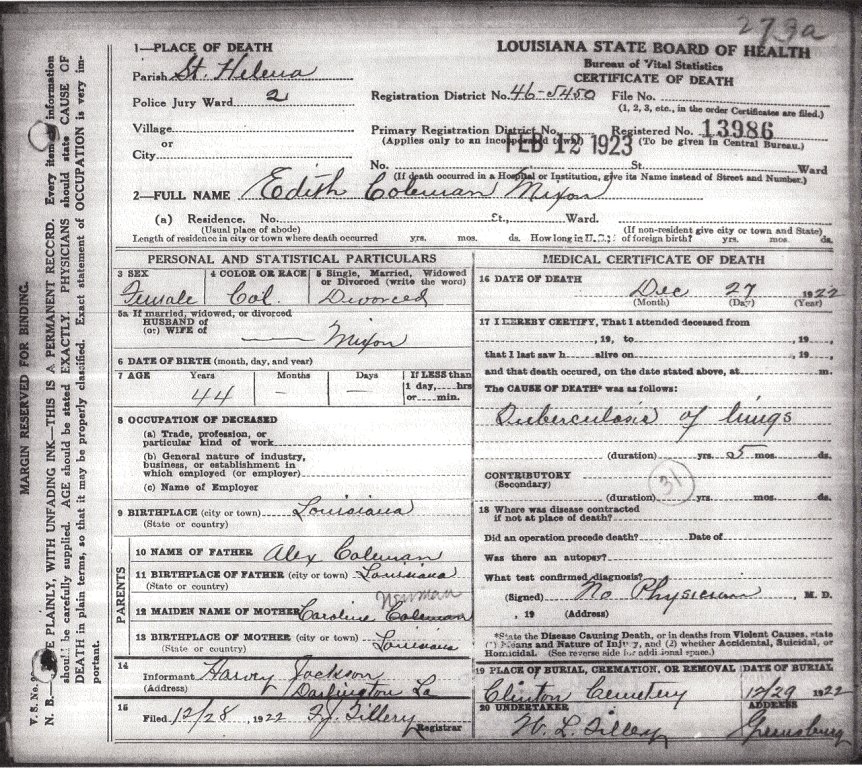 273a
1—PLACE OF DEATH
LOUISIANA STATE BOARD OF HEALTH
Bureau of Vital Statistics
CERTIFICATE OF DEATH
Parish St. Helena
Police Jury Ward 2
Registration District No. 46-5450 File No.
(1, 2, 3, etc., in the order Certificates are filed.)
Village
or
City
Primary Registration District No. Registered No. 13986
(Applies only to an incorporated town) (To be given in Central Bureau.)
FEB 12 1923
No. St. Ward
(If death occurred in a Hospital or Institution, give its Name instead of Street and Number.)
2—FULL NAME Edith Coleman Mixon
(a) Residence. No. St., Ward.
(Usual place of abode) (If non-resident give city or town and State)
Length of residence in city or town where death occurred yrs. mos. ds. How long in U.S. if of foreign birth? yrs. mos. ds.
PERSONAL AND STATISTICAL PARTICULARS
3 SEX
Female
4 COLOR OR RACE
Col.
5 Single, Married, Widowed
or Divorced (write the word)
Divorced
5a If married, widowed, or divorced
HUSBAND of
(or) WIFE of Mixon
6 DATE OF BIRTH (month, day, and year)
7 AGE Years Months Days If LESS than
1 day, hrs
or min.
44 — —
8 OCCUPATION OF DECEASED
(a) Trade, profession, or
particular kind of work
(b) General nature of industry,
business, or establishment in
which employed (or employer)
(c) Name of Employer
9 BIRTHPLACE (city or town) Louisiana
(State or country)
PARENTS
10 NAME OF FATHER Alex Coleman
11 BIRTHPLACE OF FATHER (city or town) Louisiana
(State or country)
Newman
12 MAIDEN NAME OF MOTHER Caroline Coleman
13 BIRTHPLACE OF MOTHER (city or town) Louisiana
(State or country)
14
Informant Harvey Jackson
(Address) Darlington La
15
Filed 12/28, 1922 F. J. Tillery
Registrar
MEDICAL CERTIFICATE OF DEATH
16 DATE OF DEATH
Dec 27 1922
(Month) (Day) (Year)
17 I HEREBY CERTIFY, That I attended deceased from
, 19 , to 19
that I last saw h alive on , 19 ,
and that death occured, on the date stated above, at m.
The CAUSE OF DEATH* was as follows:
Tuberculosis of lungs
(duration) yrs. 5 mos. ds.
CONTRIBUTORY
(Secondary)
31
(duration) yrs. mos. ds.
18 Where was disease contracted
if not at place of death?
Did an operation precede death? Date of
Was there an autopsy?
What test confirmed diagnosis?
(Signed) No Physician, M. D.
, 19 (Address)
*State the Disease Causing Death, or in deaths from Violent Causes, state
(1) Means and Nature of Injury, and (2) whether Accidental, Suicidal, or
Homicidal. (See reverse side for additional space.)
19 PLACE OF BURIAL, CREMATION, OR REMOVAL DATE OF BURIAL
Clinton Cemetery 12/29 1922
20 UNDERTAKER ADDRESS
W. L. Tillery Greensburg
MARGIN RESERVED FOR BINDING.
V. S. No.
N. B.— PLAINLY, WITH UNFADING INK—THIS IS A PERMANENT RECORD. Every item information
should be carefully supplied. AGE should be stated EXACTLY. PHYSICIANS should state CAUSE OF
DEATH in plain terms, so that it may be properly classified. Exact statement of OCCUPATION is very im-
portant.